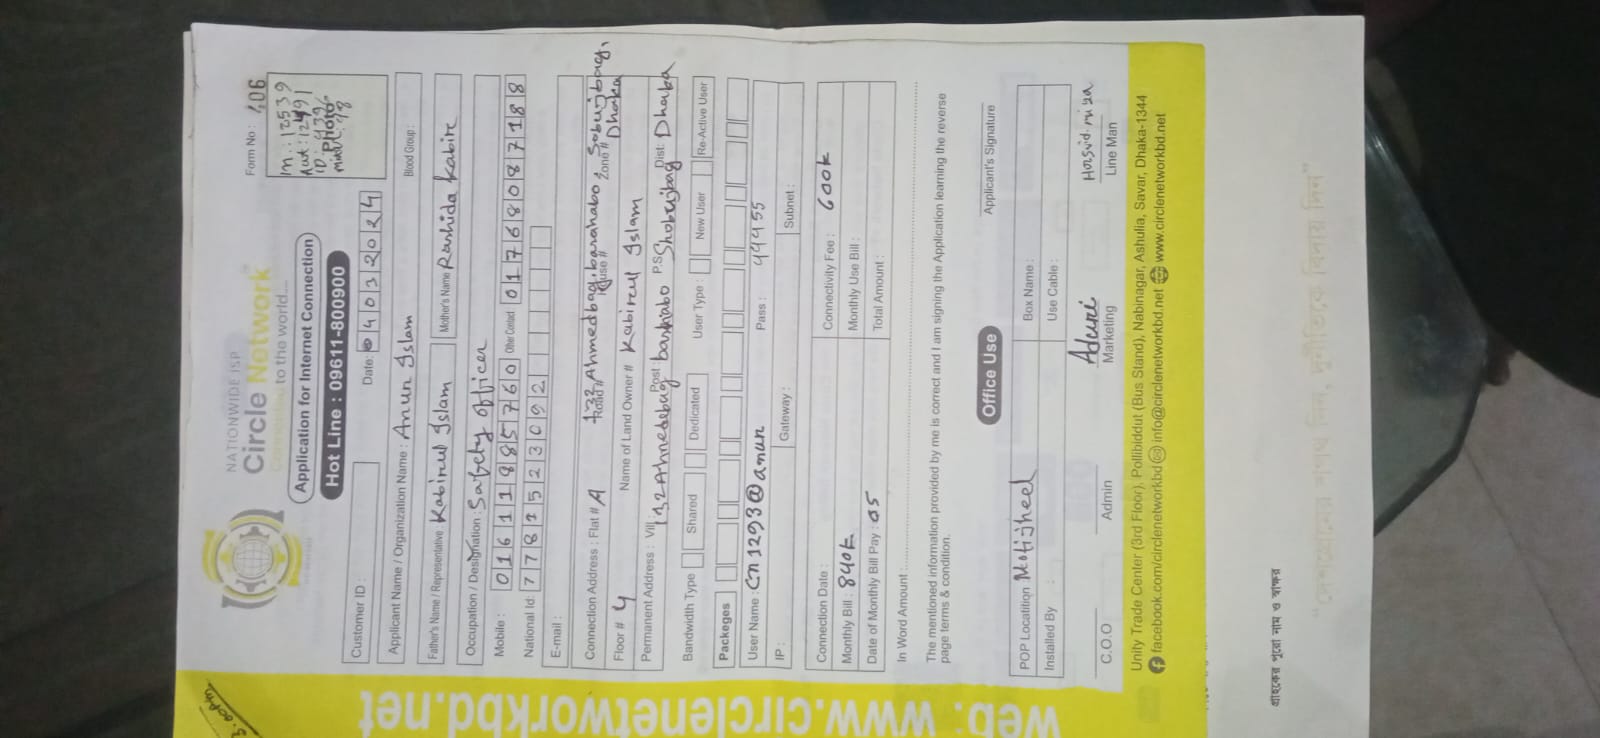 NATIONWIDE ISP
Circle Network
Connecting to the world....
Form No : 106
m.: 12539
ID : 439/
Photo
Application for Internet Connection
Hot Line : 09611-800900
Customer ID :
Date: 04032024
Applicant Name / Organization Name : Anun Islam
Blood Group :
Father's Name / Representative : Kabirul Islam Mother's Name Rashida Kabir
Occupation / Designation : Safety Officer
Mobile : 01611885760 Other Contact 01768087188
National Id: 7781523092
E-mail :
Connection Address : Flat # A Road # 132 Ahmedbag, barahabo House # Zone # Sobujbag,
Floor # 4 Name of Land Owner # Kabirul Islam Dhaka
Permanent Address : Vill 132 Ahmedebag Post: P.S Shobujbag Dist: Dhaka
Bandwidth Type Shared Dedicated User Type : New User Re-Active User
Packeges
User Name : Cn1293@anun Pass : 44455
IP : Gateway : Subnet :
Connection Date : Connectivity Fee : 600k
Monthly Bill : 840k Monthly Use Bill :
Date of Monthly Bill Pay : 05 Total Amount :
In Word Amount :
The mentioned information provided by me is correct and I am signing the Application learning the reverse
page terms & condition.
Applicant's Signature
Office Use
POP Locatition Motijheel Box Name :
Installed By : Use Cable :
C.O.O Admin Marketing Line Man
Unity Trade Center (3rd Floor), Pollibiddut (Bus Stand), Nabinagar, Ashulia, Savar, Dhaka-1344
facebook.com/circlenetworkbd info@circlenetworkbd.net www.circlenetworkbd.net
web: www.circlenetworkbd.net
গ্রাহকের পুরো নাম ও স্বাক্ষর